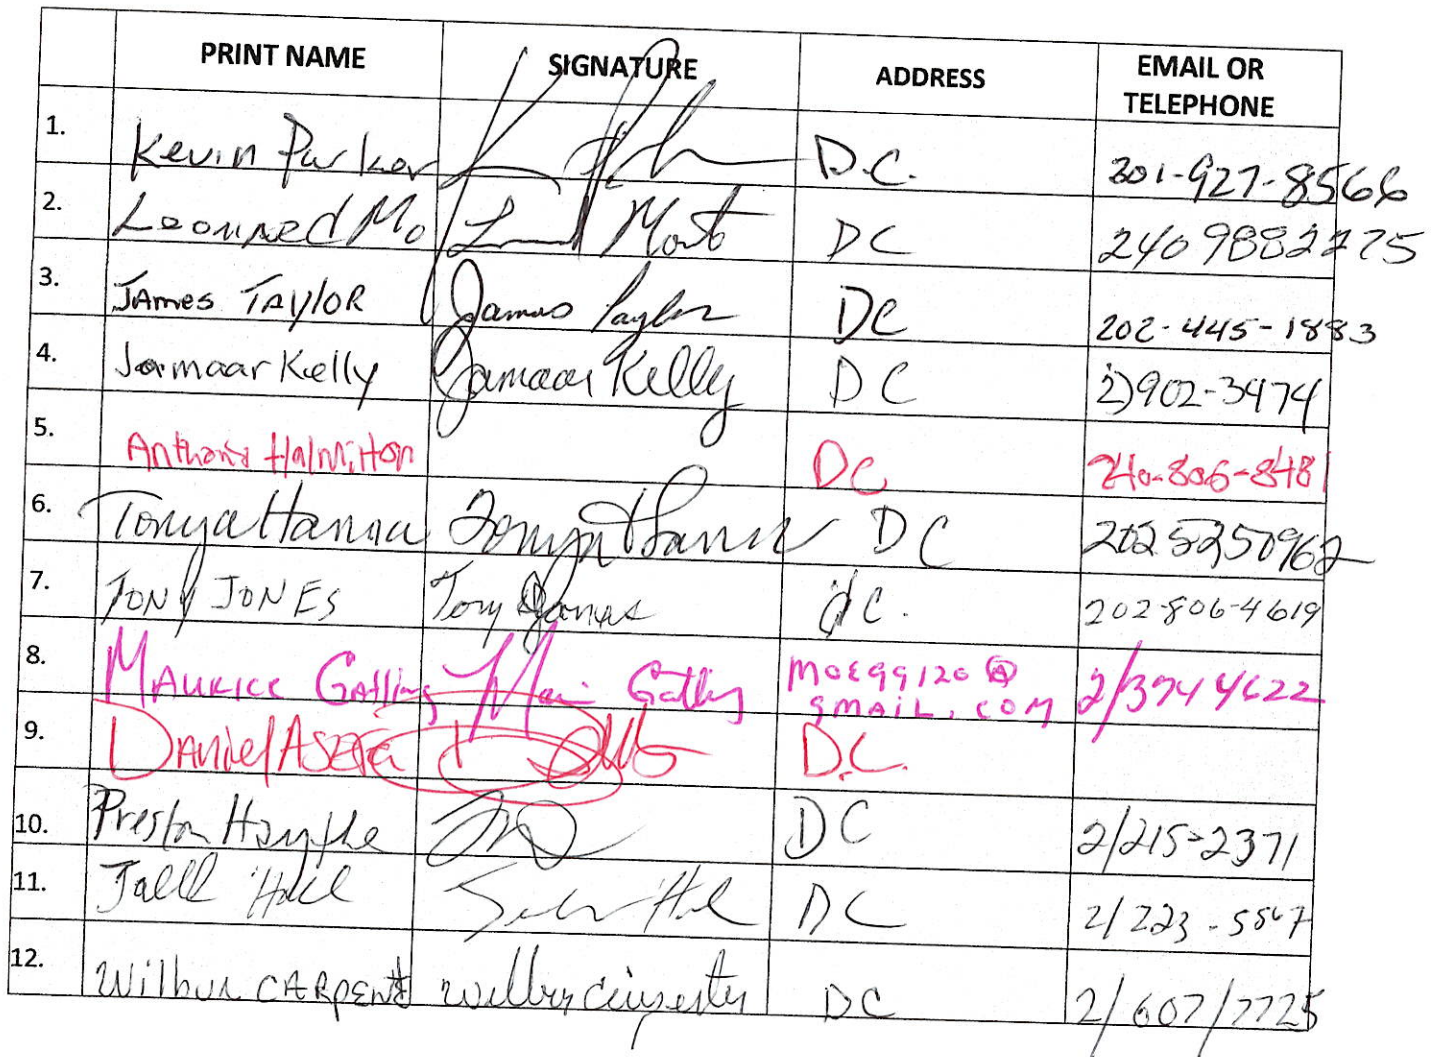 PRINT NAME SIGNATURE ADDRESS EMAIL OR TELEPHONE
1. Kevin Parker D.C. 301-927-8566
2. Leonned Mo DC 240 9882275
3. JAmes TAYLOR James Taylor DC 202-445-1883
4. Jamaar Kelly Jamaar Kelly DC 2)902-3474
5. Anthony HalMilton DC 240-806-8481
6. Tonya Hanna Tonya Hanna DC 202 5250962
7. TONY JONES Tony Jones dC. 202-806-4619
8. MAURICE Gatling Gatling MOEGG120@ GMAIL.COM 2/374 4622
9. Daniel D.C.
10. Preston Haythe DC 2/215-2371
11. Hall DC 2/223-5567
12. Wilbur CARPENt DC 2/607/7725